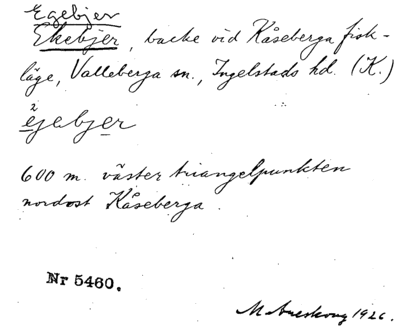 Egebjer
Ekebjer, backe vid Kåseberga fisk-
läge, Valleberga sn., Ingelstads hd. (K.)
2
ejebjer
600 m. väster triangelpunkten
nordost Kåseberga.
Nr 5460.
M 1926.